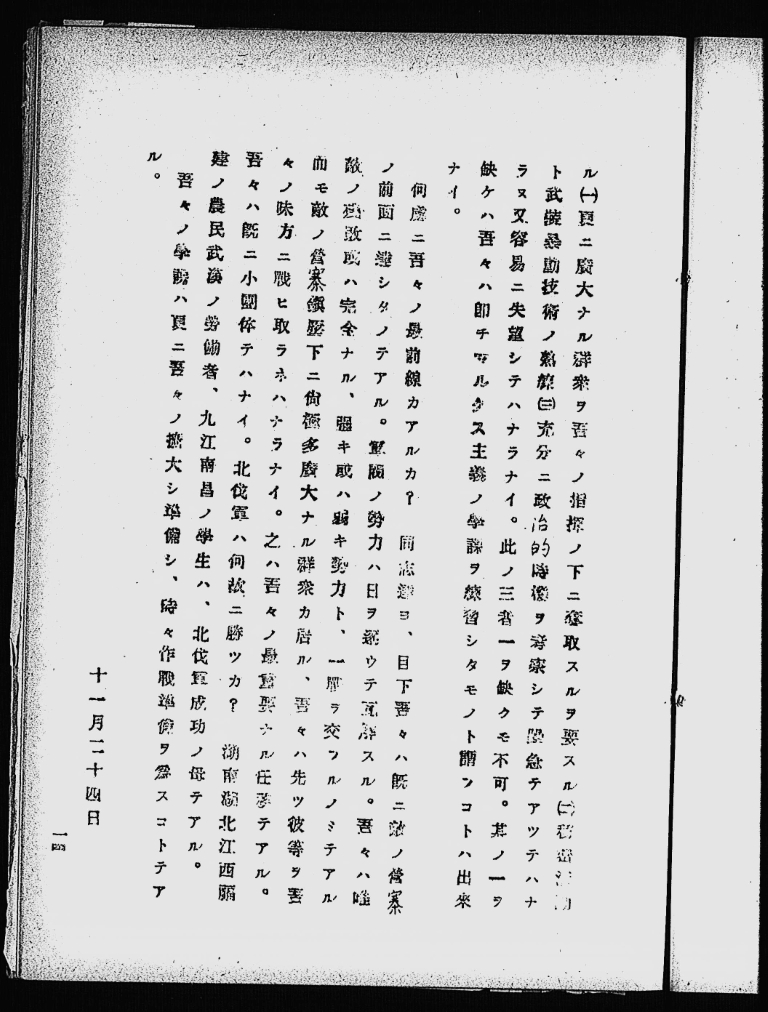 ル㈠更ニ廣大ナル群衆ヲ吾々ノ指揮ノ下ニ奪取スルヲ要スル㈡秘密活動
ト武裝暴動技術ノ熟練㈢充分ニ政治的時機ヲ考察シテ緊急テアツテハナ
ラヌ又容易ニ失望シテハナラナイ。此ノ三者一ヲ缺クモ不可。其ノ一ヲ
缺ケハ吾々ハ卽チマルクス主義ノ學課ヲ練習シタモノト謂フコトハ出來
ナイ。
何處ニ吾々ノ最前線カアルカ？同志達ヨ、目下吾々ハ既ニ敵ノ營寨
ノ前面ニ達シタノテアル。軍閥ノ勢力ハ日ヲ逐ウテ瓦解スル。吾々ハ唯
敵ノ殘敗或ハ完全ナル、强キ或ハ弱キ勢力ト、一戰ヲ交フルノミテアル
而モ敵ノ營寨鎭壓下ニ尙極多廣大ナル群衆カ居ル、吾々ハ先ツ彼等ヲ吾
々ノ味方ニ戰ヒ取ラネハナラナイ。之ハ吾々ノ最重要ナル任務テアル。
吾々ハ既ニ小團体テハナイ。北伐軍ハ何故ニ勝ツカ？湖南湖北江西福
建ノ農民武漢ノ勞働者、九江南昌ノ學生ハ、北伐軍成功ノ母テアル。
吾々ノ學說ハ更ニ吾々ノ擴大シ準備シ、時々作戰準備ヲ爲スコトテア
ル。
十一月二十四日
一四